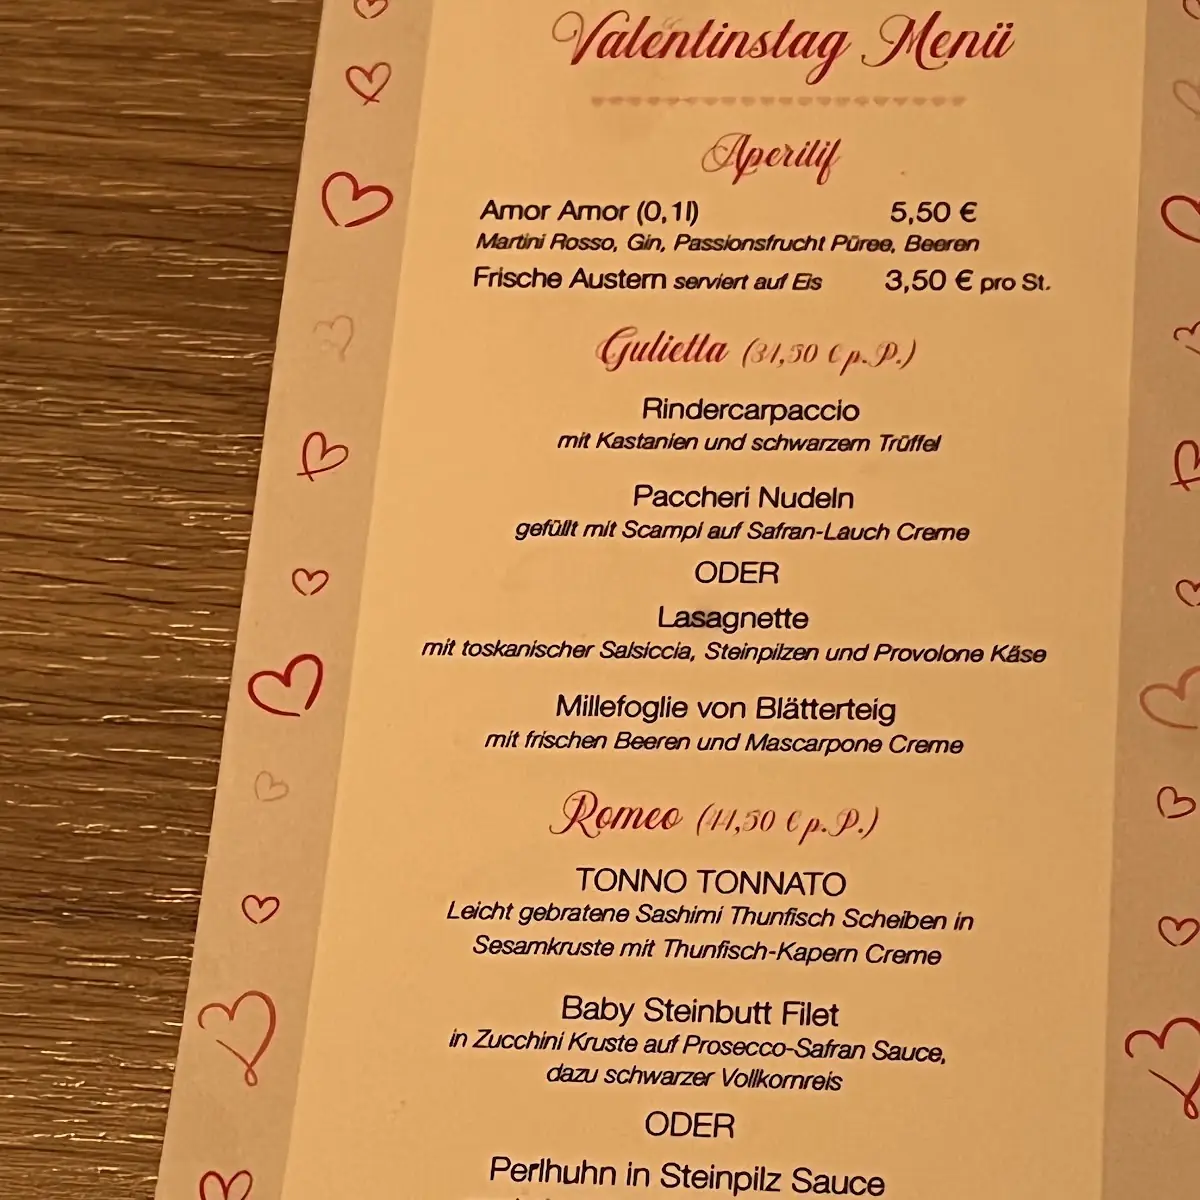 Valentinstag Menü
Aperitif
Amor Amor (0,1l) 5,50 €
Martini Rosso, Gin, Passionsfrucht Püree, Beeren
Frische Austern serviert auf Eis 3,50 € pro St.
Gulietta (34,50 € p. P.)
Rindercarpaccio
mit Kastanien und schwarzem Trüffel
Paccheri Nudeln
gefüllt mit Scampi auf Safran-Lauch Creme
ODER
Lasagnette
mit toskanischer Salsiccia, Steinpilzen und Provolone Käse
Millefoglie von Blätterteig
mit frischen Beeren und Mascarpone Creme
Romeo (44,50 € p. P.)
TONNO TONNATO
Leicht gebratene Sashimi Thunfisch Scheiben in
Sesamkruste mit Thunfisch-Kapern Creme
Baby Steinbutt Filet
in Zucchini Kruste auf Prosecco-Safran Sauce,
dazu schwarzer Vollkornreis
ODER
Perlhuhn in Steinpilz Sauce